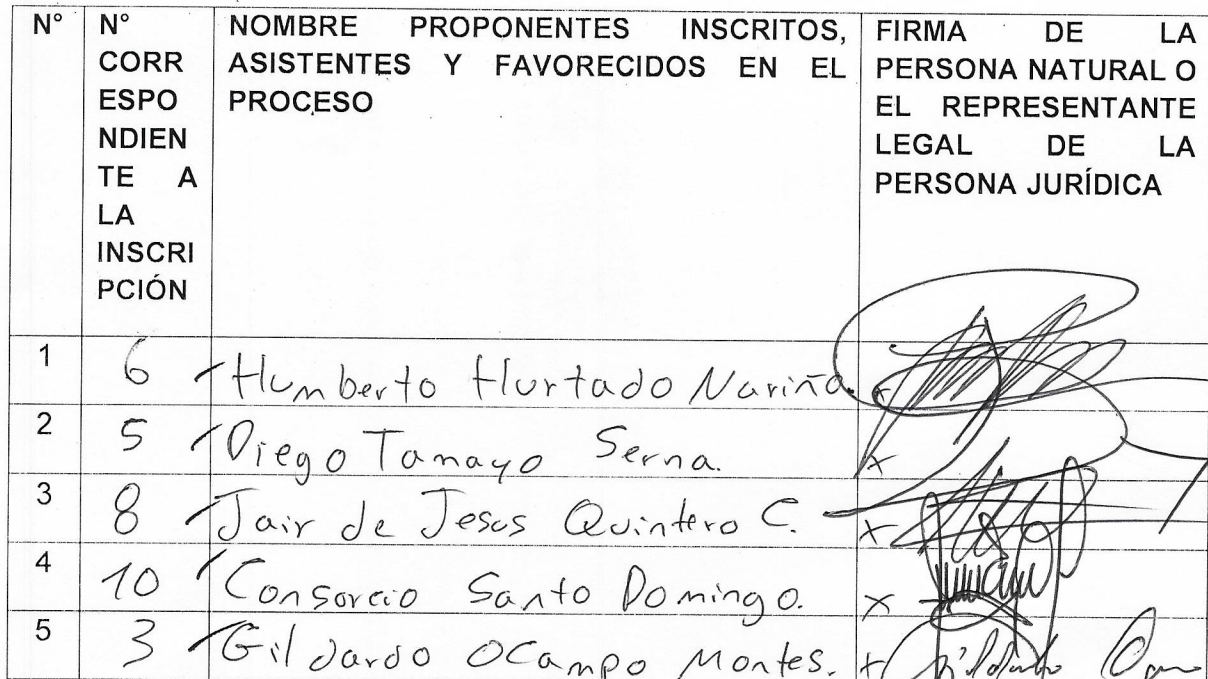 N°
N°
CORR
ESPO
NDIEN
TE A
LA
INSCRI
PCIÓN
NOMBRE PROPONENTES INSCRITOS,
ASISTENTES Y FAVORECIDOS EN EL
PROCESO
FIRMA DE LA
PERSONA NATURAL O
EL REPRESENTANTE
LEGAL DE LA
PERSONA JURÍDICA
1 6 Humberto Hurtado Nariño. x
2 5 Diego Tamayo Serna. x
3 8 Jair de Jesus Quintero C. x
4 10 Consorcio Santo Domingo. x
5 3 Gildardo Ocampo Montes. x